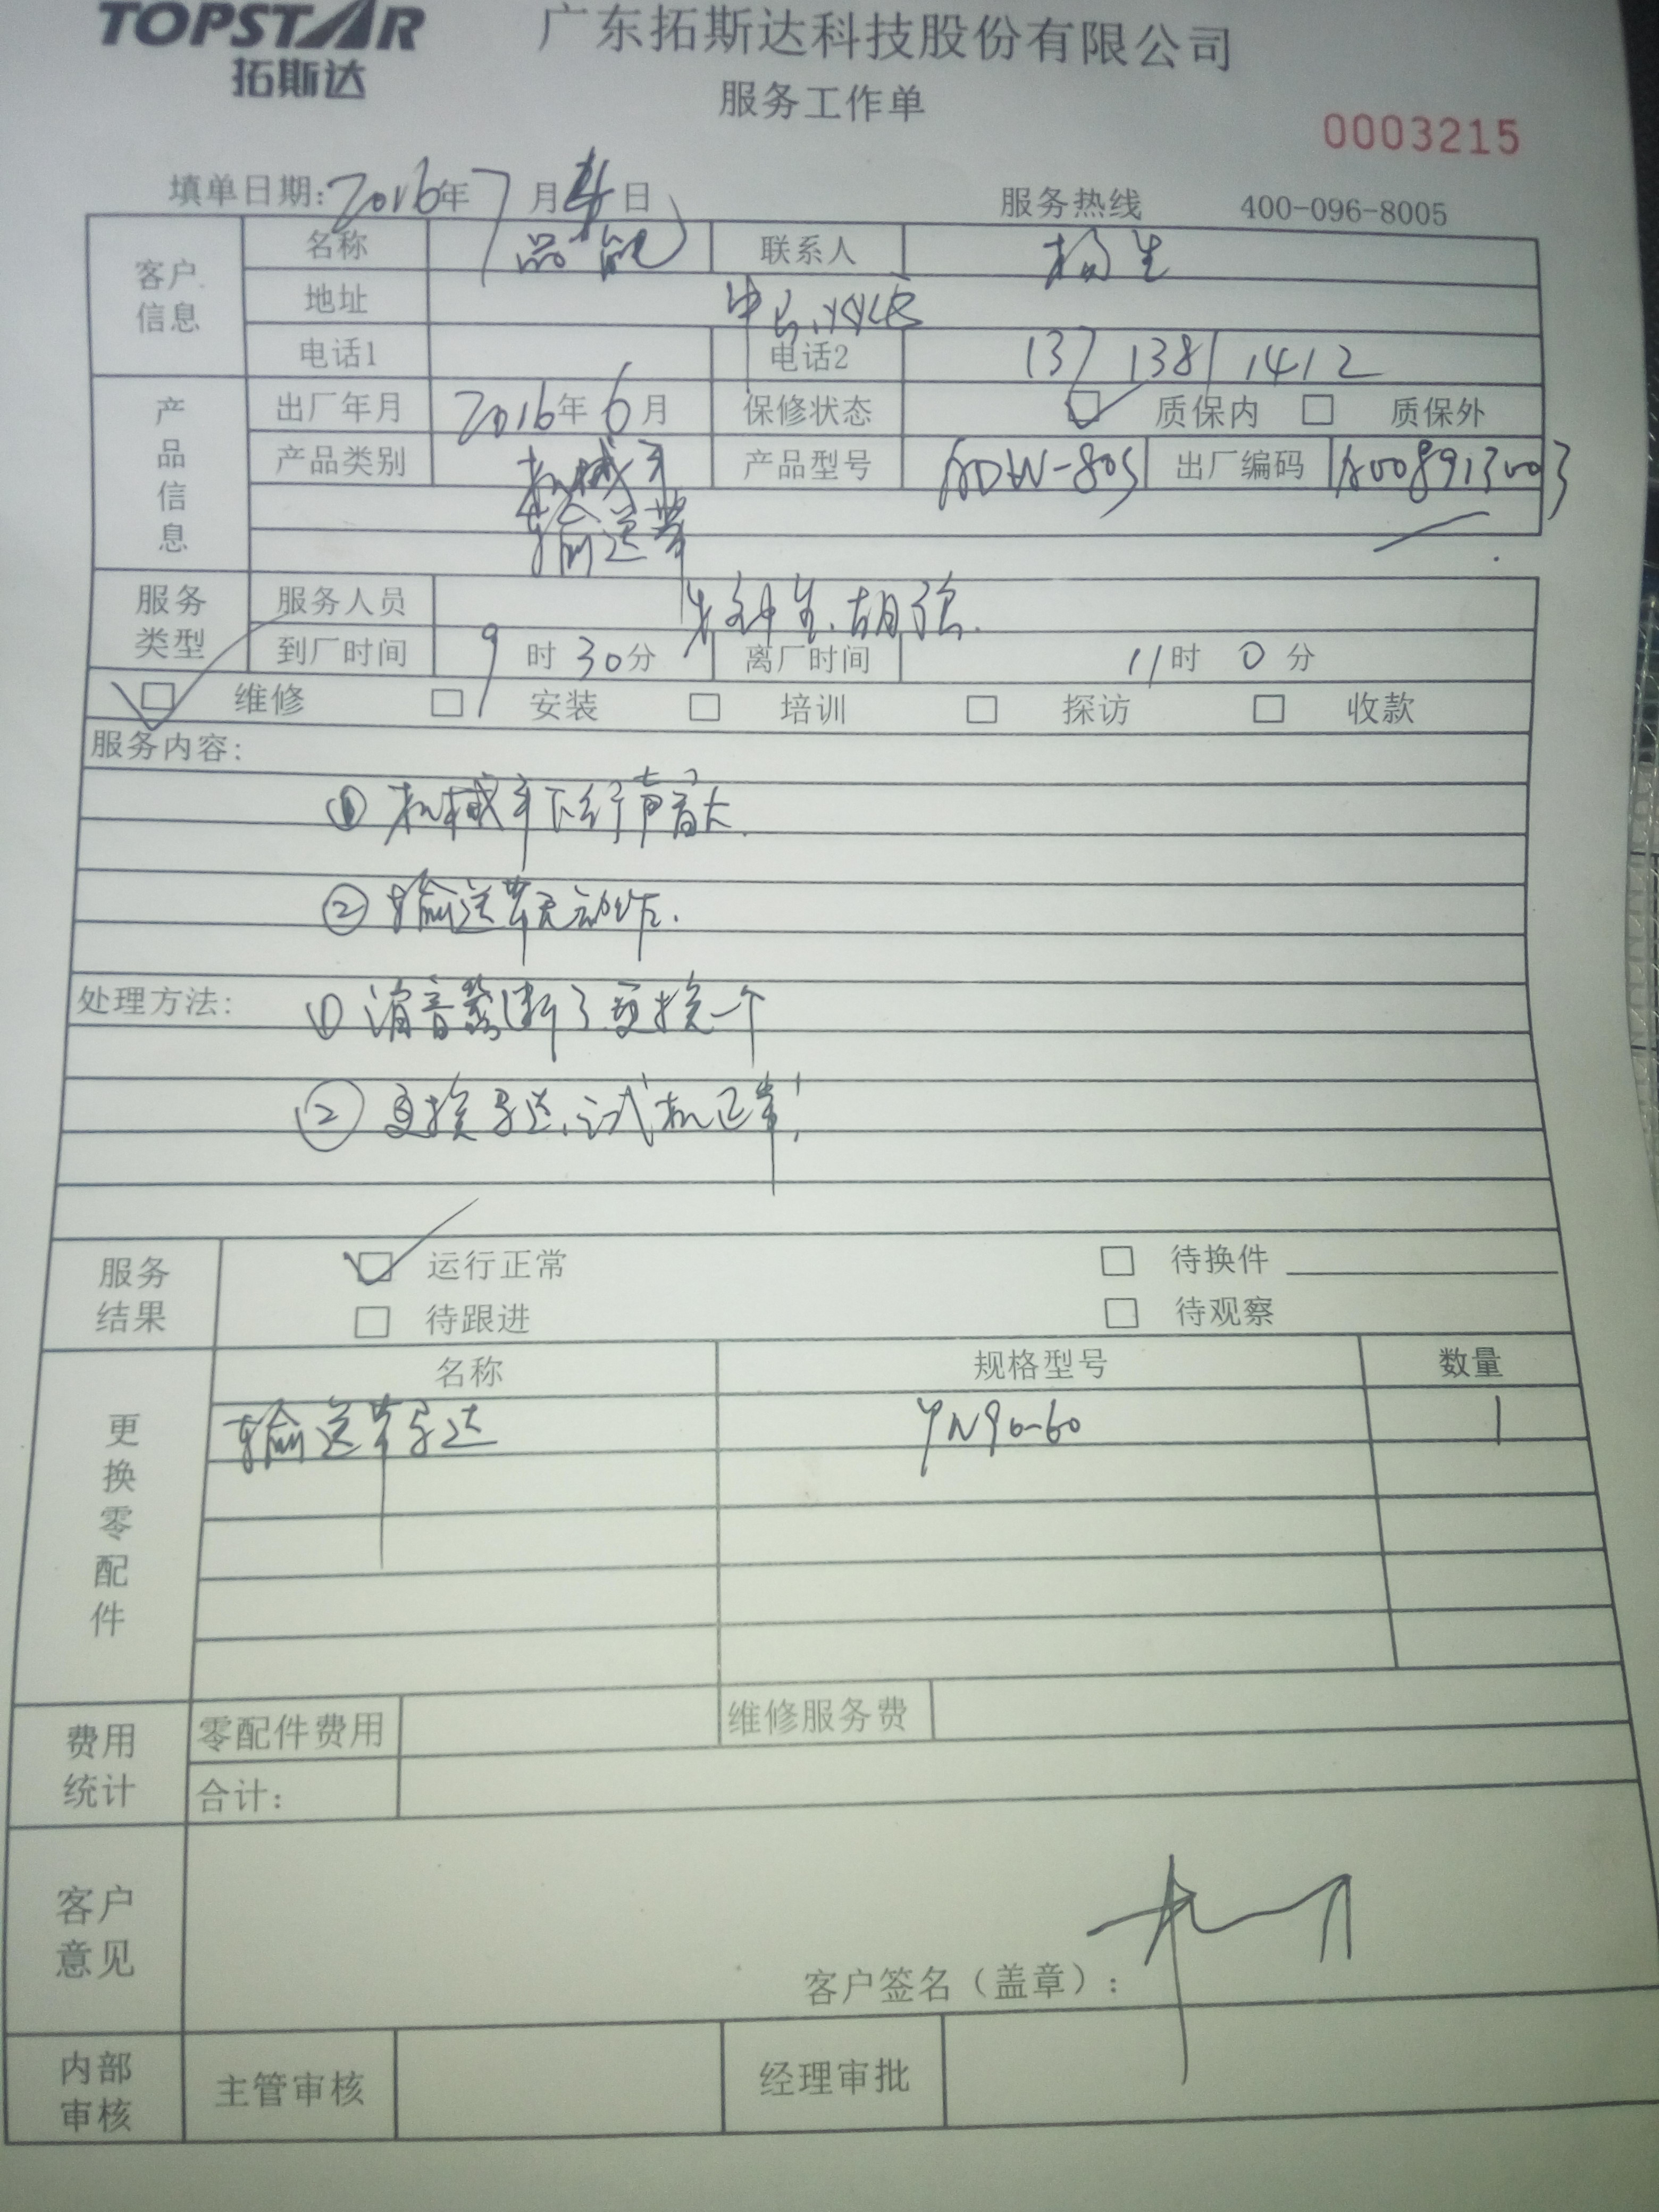 TOPSTAR
拓斯达
广东拓斯达科技股份有限公司
服务工作单
0003215
填单日期:2016年7月日
服务热线 400-096-8005
客户信息
名称 品能 联系人 杨生
地址 中山
电话1 电话2 137 1381 1412
产品信息
出厂年月 2016年6月 保修状态 ☑ 质保内 □ 质保外
产品类别 机械手 产品型号 ADW-80S 出厂编码 A008913003
输送带
服务类型
服务人员 钟生、胡强
到厂时间 9时30分 离厂时间 11时0分
☑ 维修 □ 安装 □ 培训 □ 探访 □ 收款
服务内容:
① 机械手下行声音大
② 输送带无动作.
处理方法: ① 消音器断了更换一个
② 更换马达、试机正常!
服务结果
☑ 运行正常 □ 待换件
□ 待跟进 □ 待观察
更换零配件
名称 规格型号 数量
输送带马达 YN90-60 1
费用统计
零配件费用 维修服务费
合计:
客户意见
客户签名(盖章):
内部审核
主管审核 经理审批